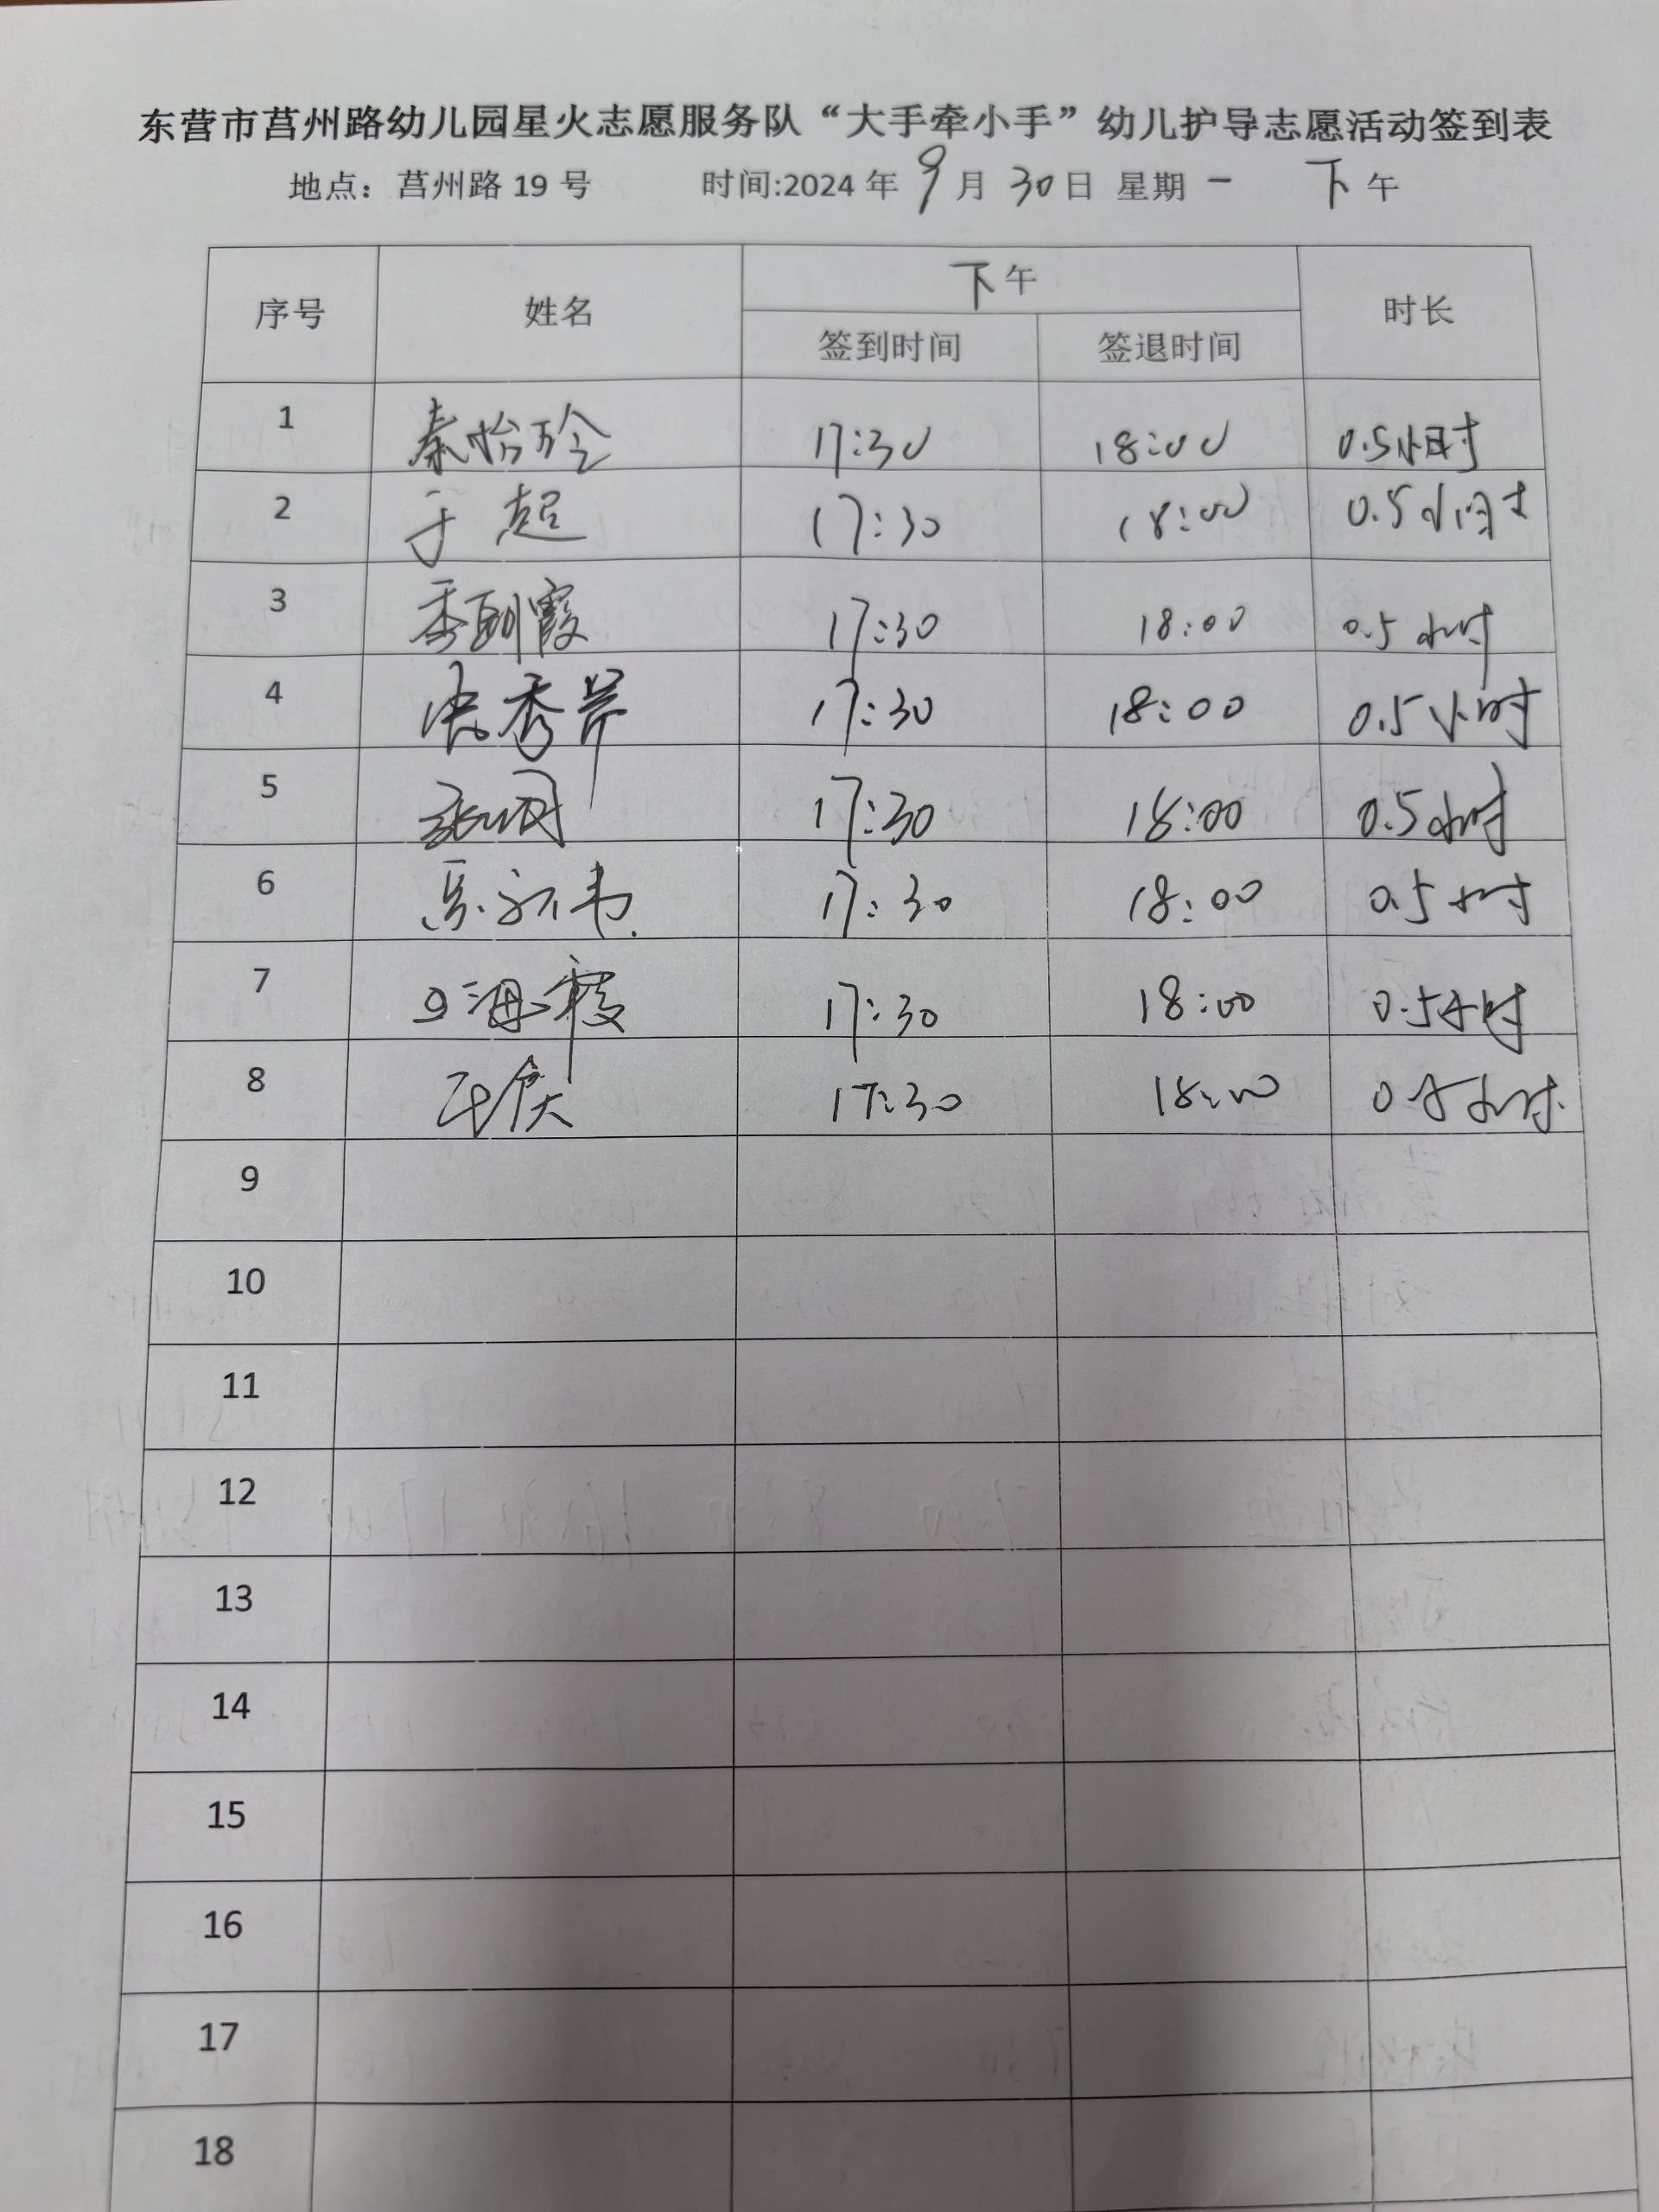 东营市莒州路幼儿园星火志愿服务队“大手牵小手”幼儿护导志愿活动签到表
地点：莒州路 19 号 时间:2024 年 9 月 30 日 星期 一 下 午
序号 姓名 下午 时长
签到时间 签退时间
1 秦怡玲 17:30 18:00 0.5小时
2 于超 17:30 18:00 0.5小时
3 17:30 18:00 0.5小时
4 张秀芹 17:30 18:00 0.5小时
5 17:30 18:00 0.5小时
6 17:30 18:00 0.5小时
7 海霞 17:30 18:00 0.5小时
8 17:30 18:00 0.5小时
9
10
11
12
13
14
15
16
17
18